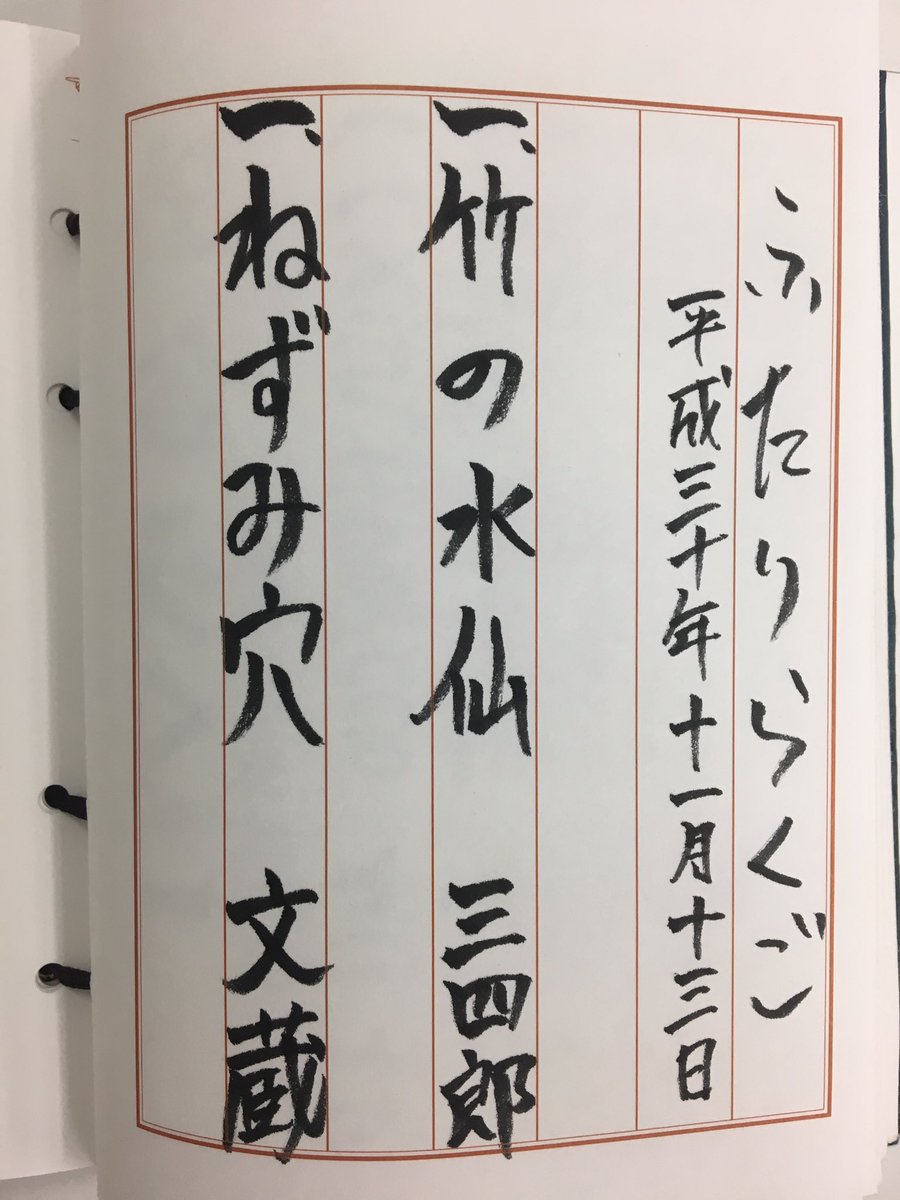 ふたりらくご
平成三十年十一月十三日
一、竹の水仙 三四郎
一、ねずみ穴 文蔵